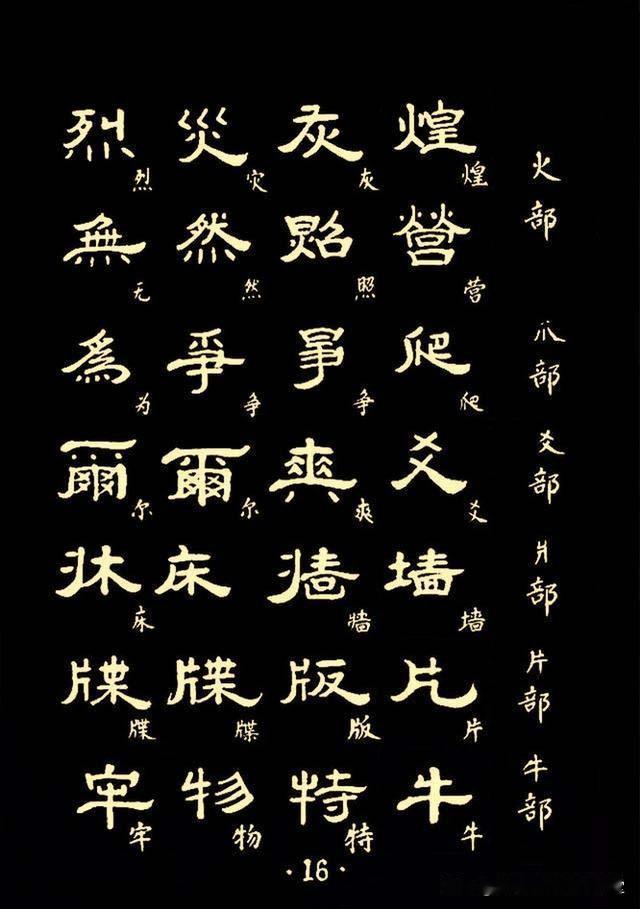 火部
煌 灰 災 烈
煌 灰 灾 烈
營 照 然 無
营 照 然 无
爪部
爬 爭 爭 爲
爬 争 争 为
爻部
爻 爽 爾 爾
爻 爽 尔 尔
爿部
墙 牆 床 牀
墙 牆 床
片部
片 版 牒 牒
片 版 牒 牒
牛部
牛 特 物 牢
牛 特 物 牢
·16·